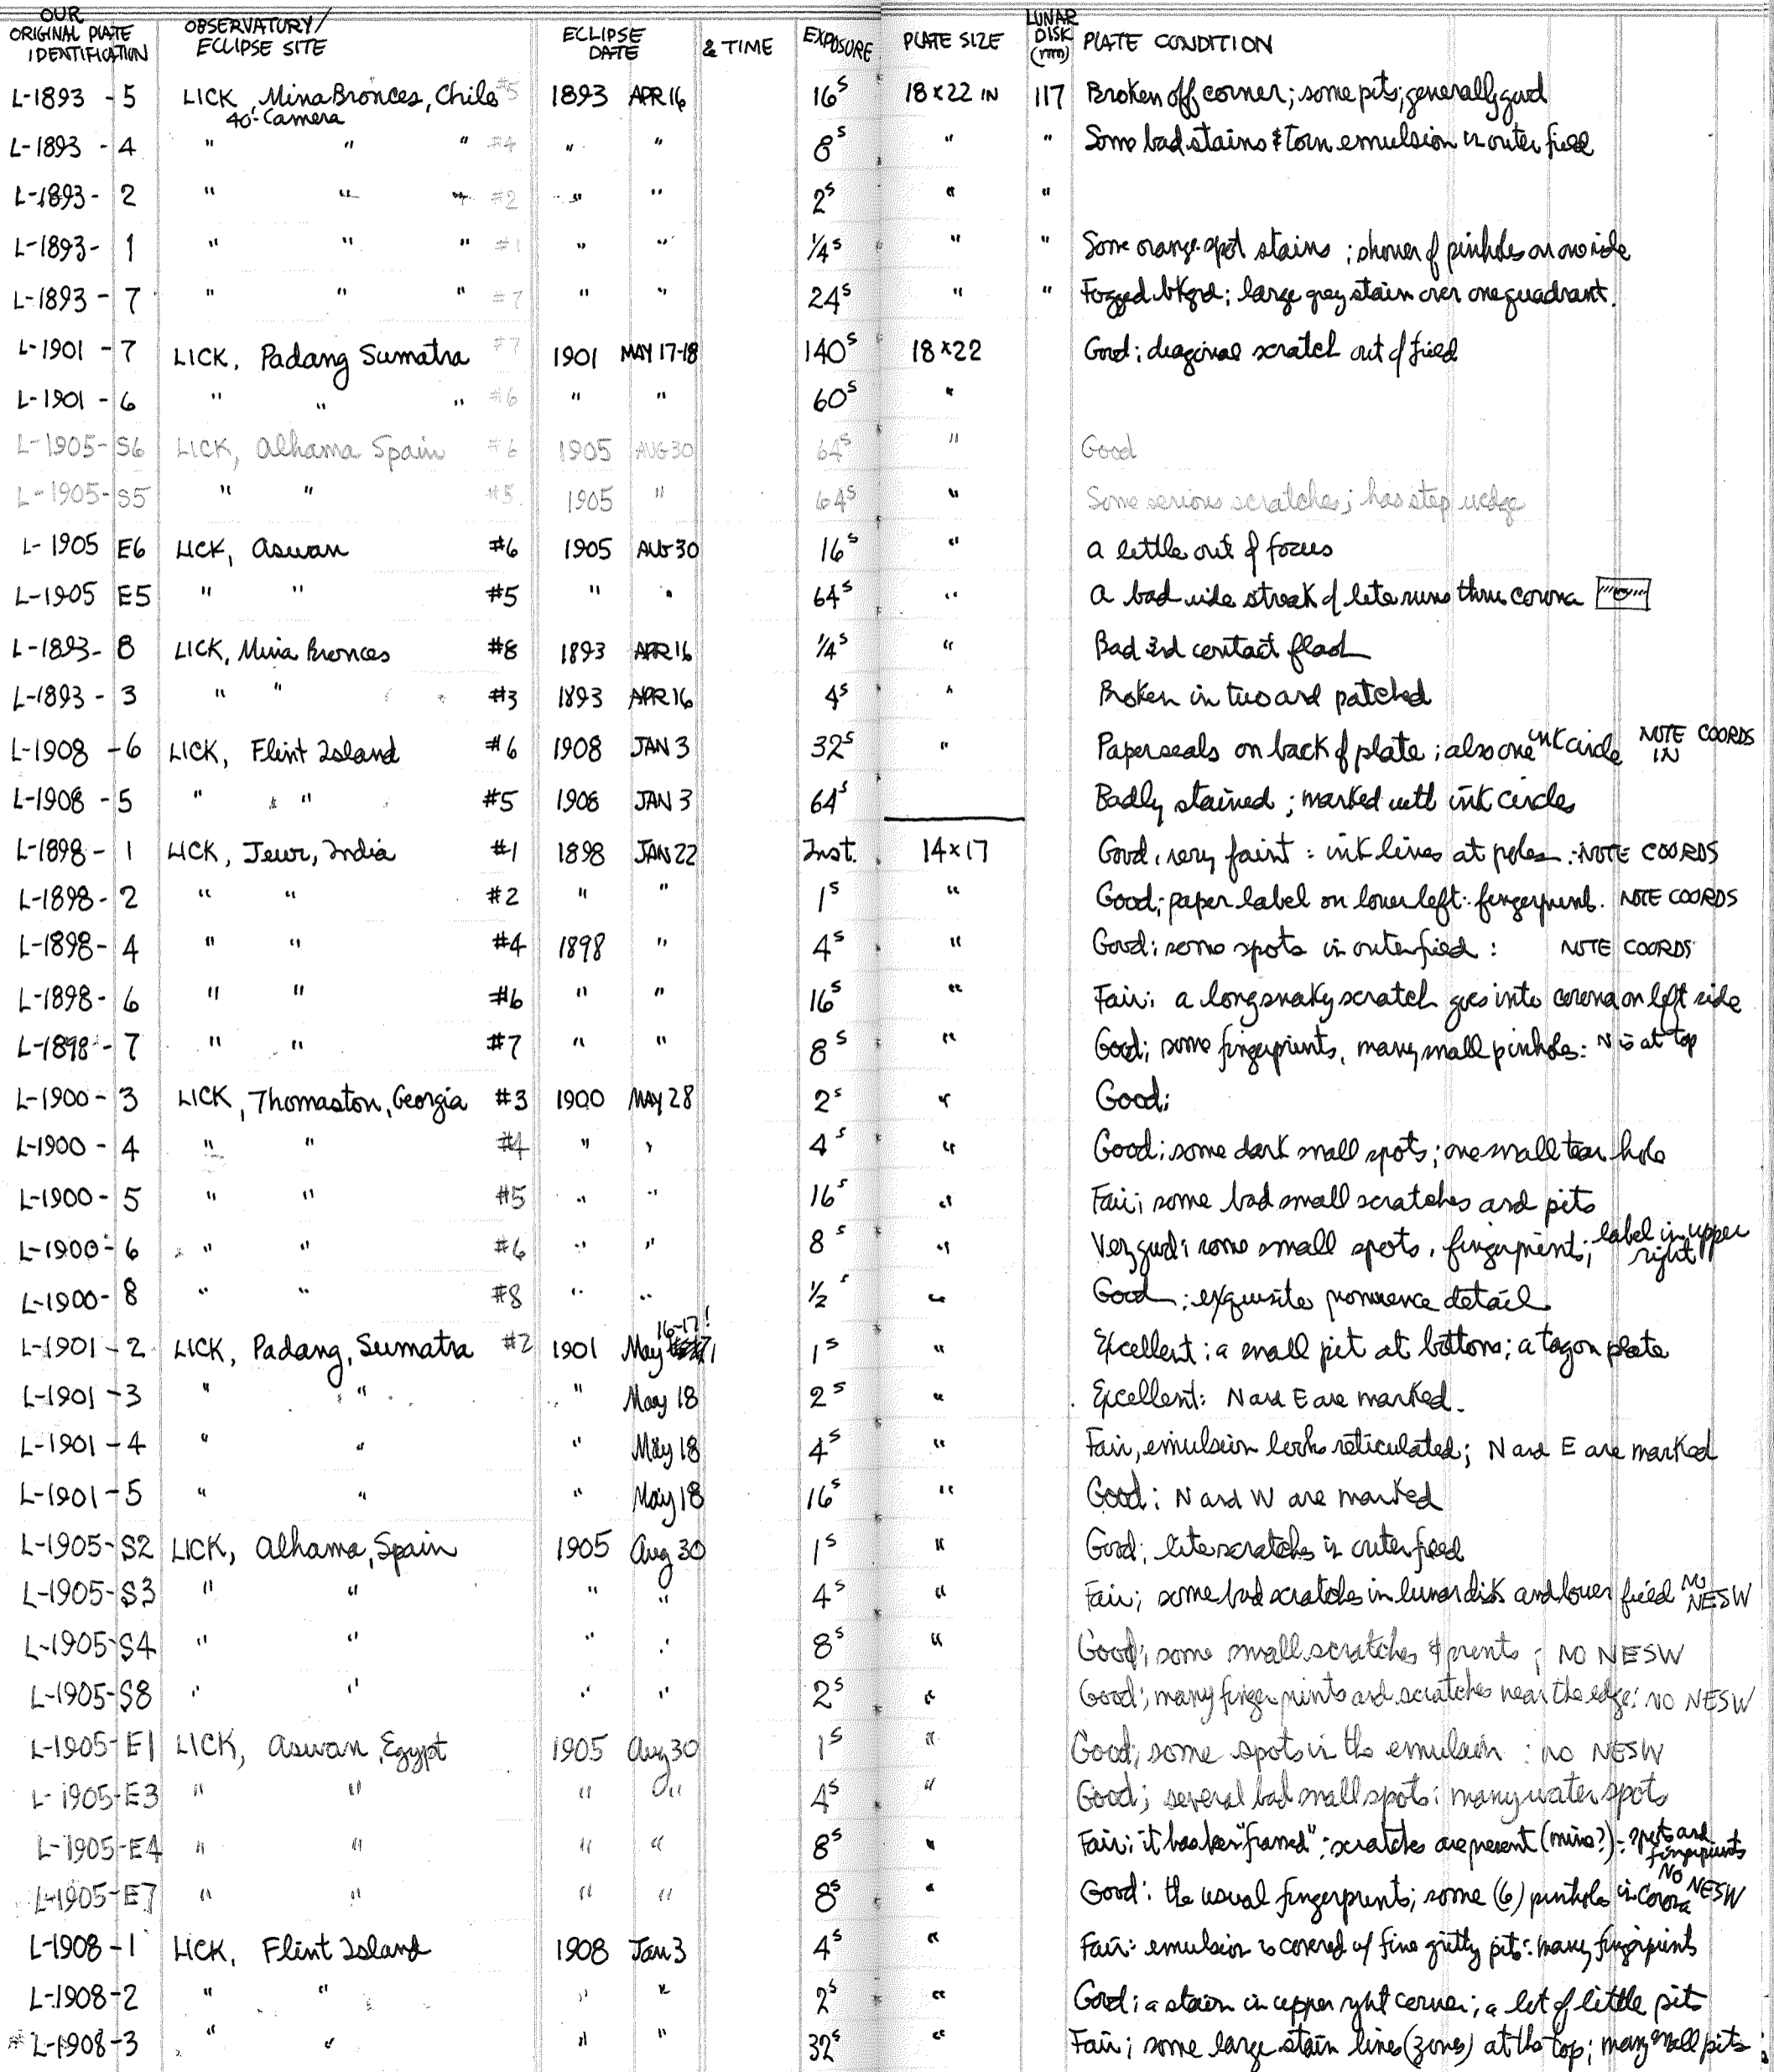 OUR ORIGINAL PLATE IDENTIFICATION OBSERVATORY/ ECLIPSE SITE ECLIPSE DATE & TIME EXPOSURE PLATE SIZE LUNAR DISK (mm) PLATE CONDITION
L-1893 - 5 LICK, Mina Bronces, Chile #5 1893 APR 16 16s 18 x 22 IN 117 Broken off corner; some pits; generally good
40' Camera
L-1893 - 4 " " " #4 " " 8s " " Some bad stains & torn emulsion in outer field
L-1893 - 2 " " " #2 " " 2s " "
L-1893 - 1 " " " #1 " " 1/4s " " Some orange spot stains; shower of pinholes on one side
L-1893 - 7 " " " #7 " " 24s " " Fogged bkgrd; large grey stain over one quadrant.
L-1901 - 7 LICK, Padang Sumatra #7 1901 MAY 17-18 140s 18 x 22 Good; diagonal scratch out of field
L-1901 - 6 " " " #6 " " 60s "
L-1905- S6 LICK, Alhama Spain #6 1905 AUG 30 64s " Good
L-1905- S5 " " #5 1905 " 64s " Some serious scratches; has step wedge
L-1905 E6 LICK, Aswan #6 1905 AUG 30 16s " A little out of focus
L-1905 E5 " " #5 " " 64s " A bad wide streak of lite runs thru corona
L-1893- 8 LICK, Mina Bronces #8 1893 APR 16 1/4s " Bad 3rd contact flash
L-1893 - 3 " " #3 1893 APR 16 4s " Broken in two and patched
L-1908 - 6 LICK, Flint Island #6 1908 JAN 3 32s " Paper seals on back of plate; also one ink circle NOTE COORDS IN
L-1908 - 5 " " #5 1908 JAN 3 64s Badly stained; marked with ink circles
L-1898 - 1 LICK, Jeur, India #1 1898 JAN 22 Inst. 14 x 17 Good, very faint: ink lines at poles. NOTE COORDS
L-1898- 2 " " #2 " " 1s " Good; paper label on lower left: fingerprint. NOTE COORDS
L-1898- 4 " " #4 1898 " 4s " Good; some spots in outer field: NOTE COORDS
L-1898- 6 " " #6 " " 16s " Fair: a long snaky scratch goes into corona on left side
L-1898- 7 " " #7 " " 8s " Good; some fingerprints, many small pinholes: N is at top
L-1900- 3 LICK, Thomaston, Georgia #3 1900 MAY 28 2s " Good;
L-1900 - 4 " " #4 " " 4s " Good; some dark small spots; one small tear hole
L-1900- 5 " " #5 " " 16s " Fair; some bad small scratches and pits
L-1900- 6 " " #6 " " 8s " Very good; some small spots, fingerprints; label in upper right
L-1900- 8 " " #8 " " 1/2s " Good; exquisite prominence detail
L-1901 - 2 LICK, Padang, Sumatra #2 1901 May 16-17! 1s " Excellent; a small pit at bottom; a tag on plate
L-1901 - 3 " " " May 18 2s " Excellent: N and E are marked.
L-1901 - 4 " " " May 18 4s " Fair, emulsion looks reticulated; N and E are marked
L-1901 - 5 " " " May 18 16s " Good; N and W are marked
L-1905- S2 LICK, Alhama, Spain 1905 Aug 30 1s " Good; lite scratches in outer field
L-1905- S3 " " " " 4s " Fair; some bad scratches in lunar disk and lower field NO NESW
L-1905- S4 " " " " 8s " Good; some small scratches & prints; NO NESW
L-1905- S8 " " " " 2s " Good; many fingerprints and scratches near the edge: NO NESW
L-1905- E1 LICK, Aswan, Egypt 1905 Aug 30 1s " Good; some spots in the emulsion: NO NESW
L-1905-E3 " " " " 4s " Good; several bad small spots: many water spots
L-1905-E4 " " " " 8s " Fair; it has been "framed"; scratches are present (mine?); spots and fingerprints
L-1905-E7 " " " " 8s " Good: the usual fingerprints; some (6) pinholes in corona NO NESW
L-1908 - 1 LICK, Flint Island 1908 Jan 3 4s " Fair: emulsion is covered w/ fine gritty pits: many fingerprints
L-1908-2 " " " " 2s " Good; a stain in upper right corner; a lot of little pits
* L-1908-3 " " " " 32s " Fair; some large stain lines (zones) at the top; many small pits